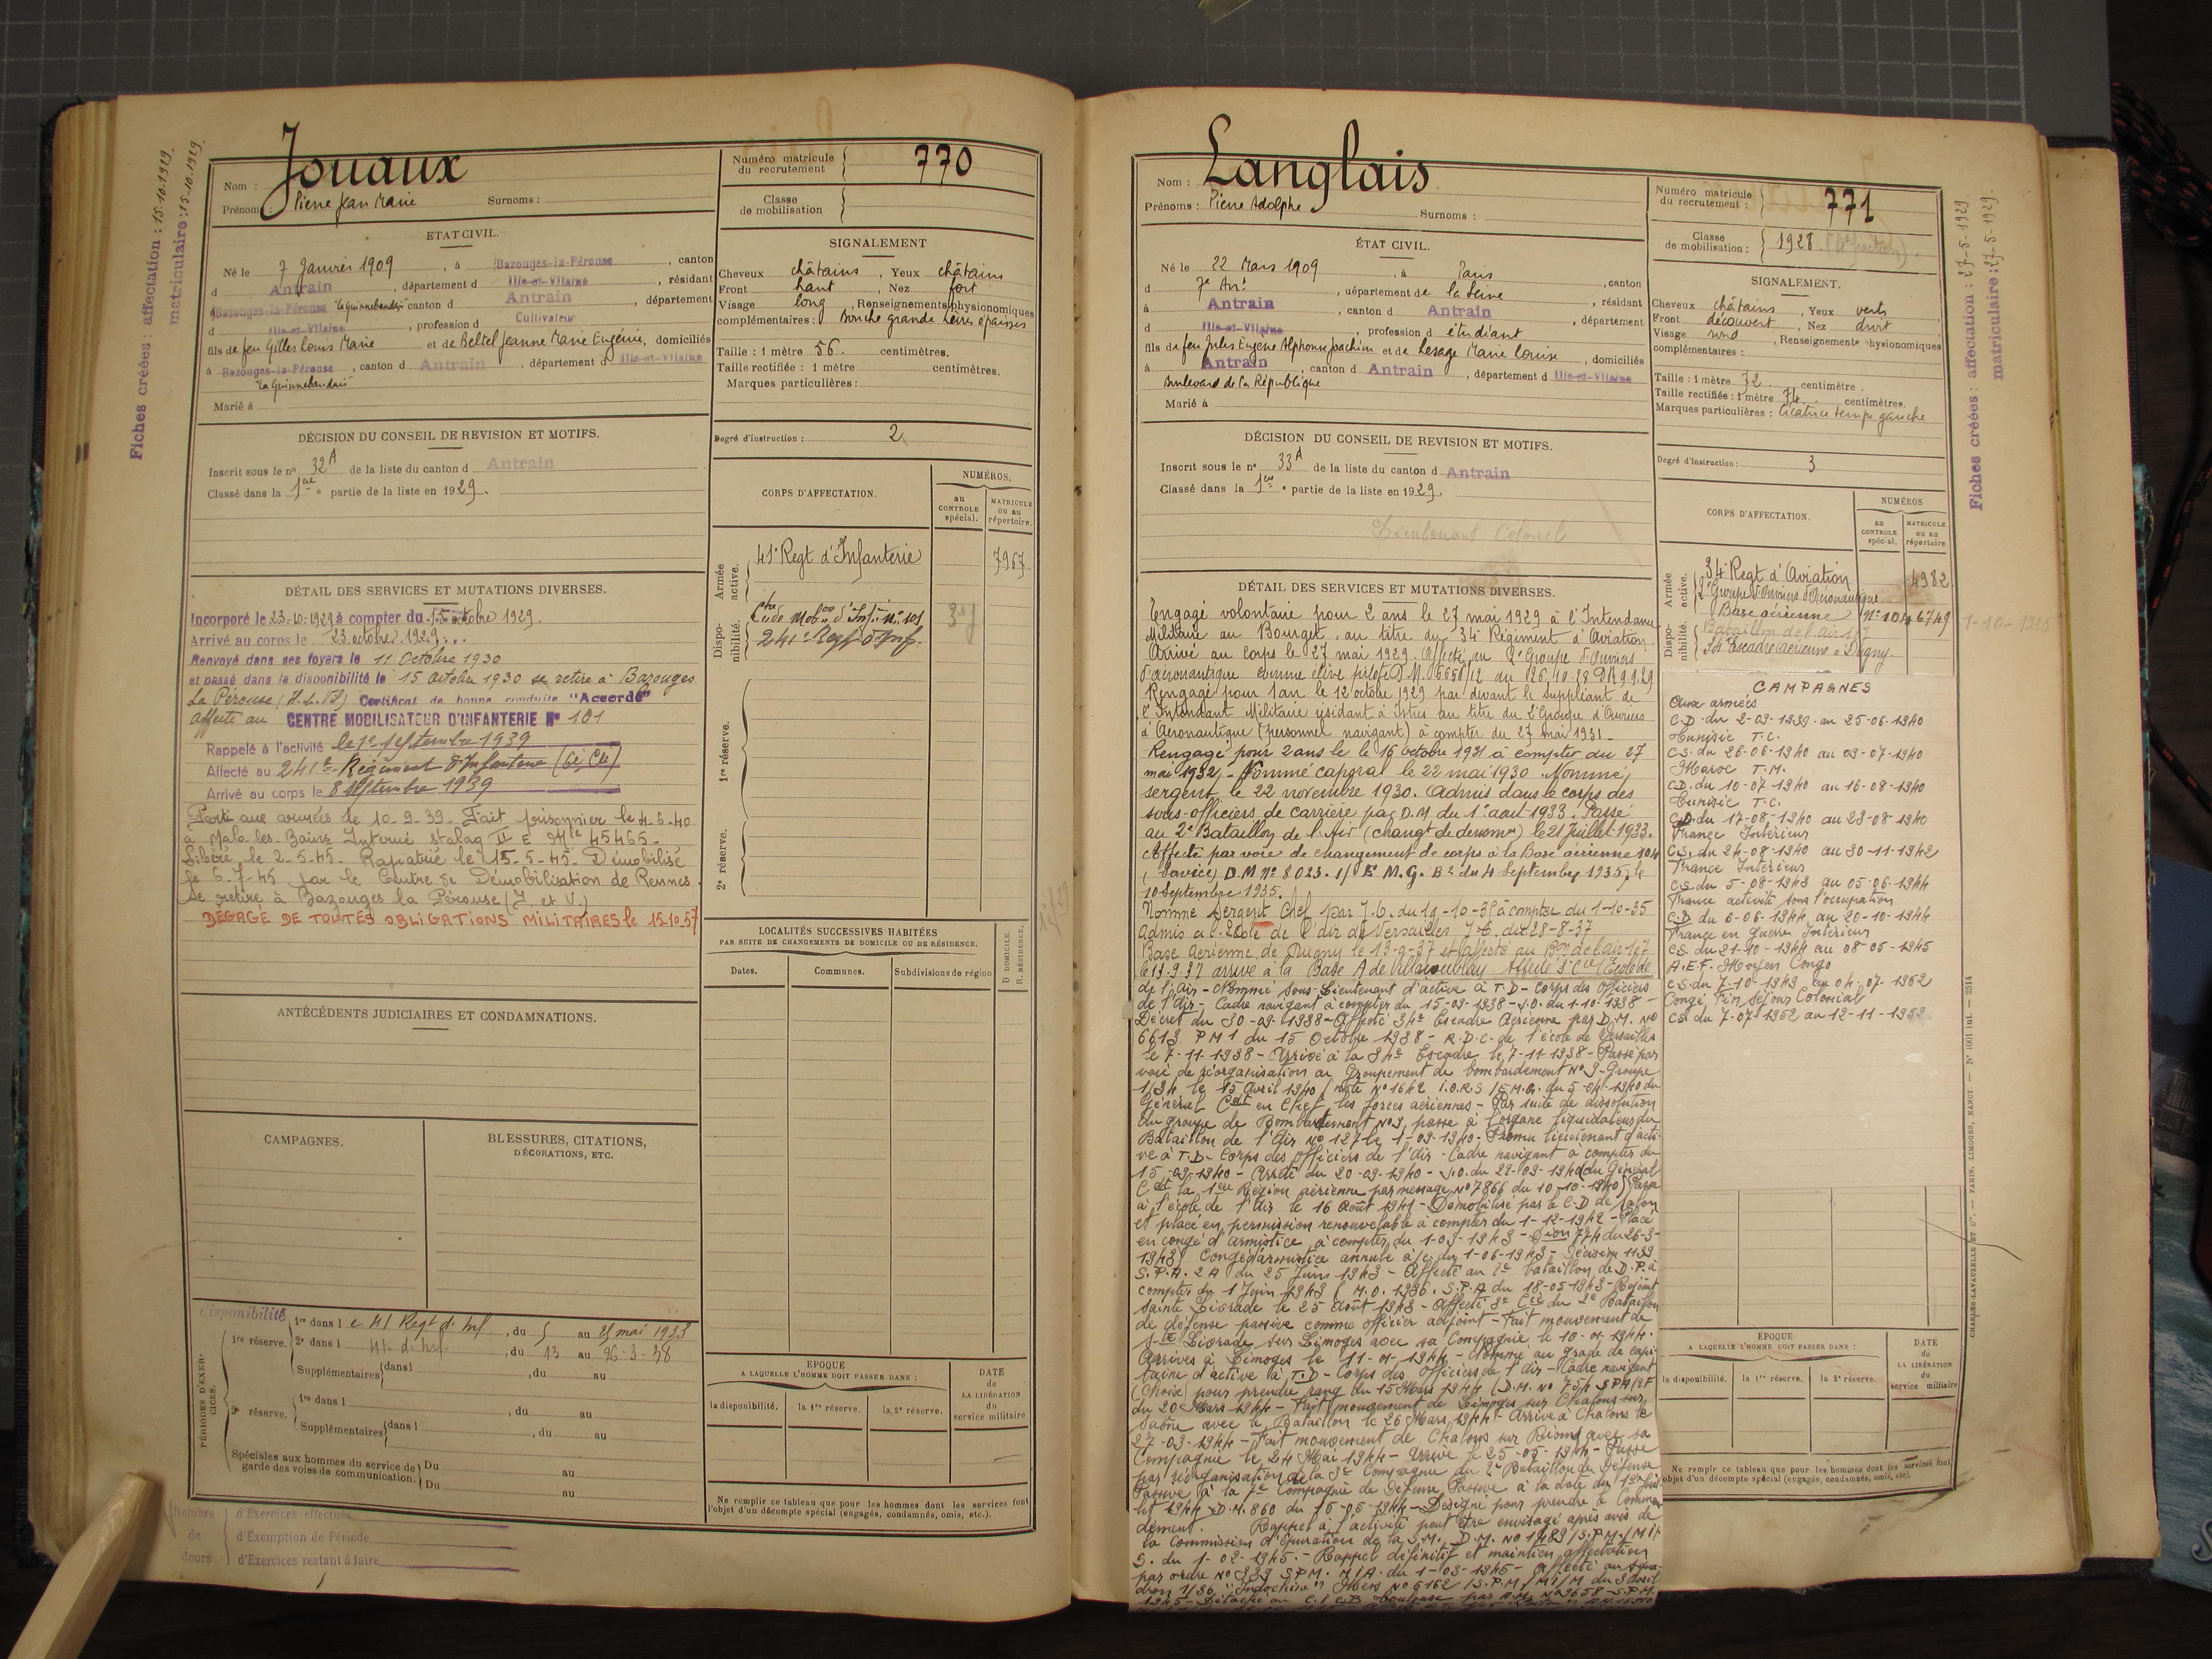 Fiches créées : affectation : 15-10-1929.
matriculaire : 15-10-1929.
Nom : Jouaux
Prénom : Pierre Jean Marie Surnoms :
Numéro matricule du recrutement 770
Classe de mobilisation
ETAT CIVIL.
Né le 7 Janvier 1909, à Bazouges-la-Pérouse, canton
d Antrain, département d Ille-et-Vilaine, résidant
à Bazouges-la-Pérouse canton d Antrain, département
d Ille-et-Vilaine, profession d Cultivateur
fils de feu Gilles Louis Marie et de Beltel Jeanne Marie Eugénie, domiciliés
à Bazouges-la-Pérouse, canton d Antrain, département d Ille-et-Vilaine
Marié à
SIGNALEMENT
Cheveux châtains, Yeux châtains
Front haut, Nez fort
Visage long, Renseignements physionomiques
complémentaires : Bouche grande lèvres épaisses
Taille : 1 mètre 56. centimètres.
Taille rectifiée : 1 mètre centimètres.
Marques particulières :
Degré d'instruction : 2
DÉCISION DU CONSEIL DE REVISION ET MOTIFS.
Inscrit sous le n° 32A de la liste du canton d Antrain
Classé dans la 1ère partie de la liste en 1929.
CORPS D'AFFECTATION.
NUMÉROS.
au CONTROLE spécial.
MATRICULE ou au répertoire.
Armée active.
41e Regt d'Infanterie 7967
Disponibilité.
Ctre de Mobon d'Infie N° 101
241e Regt d'Inf.
1re réserve.
2e réserve.
DÉTAIL DES SERVICES ET MUTATIONS DIVERSES.
Incorporé le 23-10-1929 à compter du 15 octobre 1929.
Arrivé au corps le 23 octobre 1929...
Renvoyé dans ses foyers le 11 Octobre 1930
et passé dans la disponibilité le 15 Octobre 1930 se retire à Bazouges
La Pérouse Certificat de bonne conduite "Accordé"
affecté au CENTRE MOBILISATEUR D'INFANTERIE N° 101
Rappelé à l'activité le 1er septembre 1939
Affecté au 241e Régiment d'Infanterie (6e Cie)
Arrivé au corps le 8 septembre 1939
Parti aux armées le 10-9-39. Fait prisonnier le 4-6-40
à Malo-les-Bains Interné stalag II E Mle 45465.
Libéré le 2-5-45. Rapatrié le 15-5-45. Démobilisé
le 6-7-45 par le Centre de Démobilisation de Rennes.
Se retire à Bazouges la Pérouse (I. et V.)
DÉGAGÉ DE TOUTES OBLIGATIONS MILITAIRES le 15-10-57
LOCALITÉS SUCCESSIVES HABITÉES
PAR SUITE DE CHANGEMENTS DE DOMICILE OU DE RÉSIDENCE.
Dates. Communes. Subdivisions de région
D. DOMICILE.
R. RÉSIDENCE.
ANTÉCÉDENTS JUDICIAIRES ET CONDAMNATIONS.
CAMPAGNES.
BLESSURES, CITATIONS, DÉCORATIONS, ETC.
PÉRIODES D'EXERCICES.
Disponibilité
1re réserve.
1re dans l e 41 Regt d'Inf, du 5 au 25 mai 1933
2e dans l 41 d'Inf., du 13 au 26-3-38
Supplémentaires dans l, du au
2e réserve.
1re dans l, du au
Supplémentaires dans l, du au
Spéciales aux hommes du service de garde des voies de communication.
Du au
Du au
Nombre de Jours
d'Exercices effectués
d'Exemption de Période
d'Exercices restant à faire
EPOQUE
A LAQUELLE L'HOMME DOIT PASSER DANS :
la disponibilité. la 1re réserve. la 2e réserve.
DATE de LA LIBÉRATION du service militaire
Ne remplir ce tableau que pour les hommes dont les services font
l'objet d'un décompte spécial (engagés, condamnés, omis, etc.).
Nom : Langlais
Prénoms : Pierre Adolphe Surnoms :
Numéro matricule du recrutement : 771
Classe de mobilisation : 1928
Fiches créées : affectation : 27-5-1929
matriculaire : 27-5-1929.
ÉTAT CIVIL.
Né le 22 Mars 1909, à Paris
d 7e Arrt, département de la Seine, canton, résidant
à Antrain, canton d Antrain, département
d Ille-et-Vilaine, profession d étudiant
fils de feu Jules Eugène Alphonse Joachim et de Lesage Marie Louise, domiciliés
à Antrain, canton d Antrain, département d Ille-et-Vilaine
Boulevard de la République
Marié à
SIGNALEMENT.
Cheveux châtains, Yeux verts
Front découvert, Nez droit
Visage rond, Renseignements physionomiques
complémentaires :
Taille : 1 mètre 72 centimètre.
Taille rectifiée : 1 mètre 74 centimètres.
Marques particulières : Cicatrice tempe gauche
Degré d'instruction : 3
DÉCISION DU CONSEIL DE REVISION ET MOTIFS.
Inscrit sous le n° 33A de la liste du canton d Antrain
Classé dans la 1ère partie de la liste en 1929.
Lieutenant Colonel
CORPS D'AFFECTATION.
NUMÉROS
au CONTROLE spécial.
MATRICULE ou au répertoire
Armée active.
34e Regt d'Aviation 4982
2e Groupe d'Ouvriers d'Aéronautique
Base aérienne N° 104 6749
Disponibilité.
Bataillon de l'air 107
34e Escadre aérienne à Dugny.
DÉTAIL DES SERVICES ET MUTATIONS DIVERSES.
Engagé volontaire pour 2 ans le 27 mai 1929 à l'Intendance
Militaire au Bourget, au titre du 34e Régiment d'Aviation
Arrivé au corps le 27 mai 1929. Affecté au 2e Groupe d'Ouvriers
d'aéronautique comme élève pilote
Rengagé pour 1 an le 12 octobre 1929 par devant le suppléant de
l'Intendant Militaire résidant à Istres au titre du 2e Groupe d'Ouvriers
d'Aéronautique (personnel navigant) à compter du 27 mai 1931.
Rengagé pour 2 ans le 16 octobre 1931 à compter du 27
mai 1932. Nommé caporal le 22 mai 1930. Nommé
sergent le 22 novembre 1930. Admis dans le corps des
sous-officiers de carrière par D.M du 1er août 1933. Passé
au 2e Bataillon de l'Air (changt de dénomon) le 21 Juillet 1933.
Affecté par voie de changement de corps à la Base aérienne 104
D.M N° 8023. 1/ E.M.G. Bn du 4 Septembre 1935, le
10 Septembre 1935.
Nommé Sergent Chef par J.O. du 19-10-35 à compter du 1-10-35
Admis à l'Ecole de l'Air de Versailles J.O. du 28-8-37
Base Aérienne de Dugny le 13-9-37 et affecté au Bon de l'air 107
le 13-9-37 arrivé à la Base A de Villacoublay
de l'Air - Nommé sous-Lieutenant d'active à T.D - Corps des Officiers
de l'Air - Cadre navigant à compter du 15-09-1938 - J.O. du 1-10-1938
Décret du 30-09-1938 - Affecté 34e Escadre Aérienne par D.M. N°
6613 PM1 du 15 Octobre 1938 - R.D.C. de l'école de Versailles
le 7-11-1938 - Arrivé à la 34e Escadre le 7-11-1938 - Passé par
voie de réorganisation au Groupement de bombardement N° 9 - Groupe
1/34 le 15 Avril 1940 (note N° 1642 du 5-04-1940 du
Général Cdt en Chef les forces aériennes - Par suite de dissolution
du groupe de Bombardement N° 9, passe à l'organe liquidateur du
Bataillon de l'Air N° 127 le 1-09-1940 - Promu lieutenant d'acti-
ve à T.D - Corps des officiers de l'air - Cadre navigant à compter du
15-09-1940 - Arrêté du 20-09-1940 - J.O. du 22-09-1940 (du Général
Cdt la 1ère Région aérienne par message N° 7866 du 10-10-1940) Passe
à l'école de l'Air le 16 Août 1941 - Démobilisé par le C.D de Salon
et placé en permission renouvelable à compter du 1-12-1942 - Placé
en congé d'armistice à compter du 1-03-1943 - Don 774 du 26-3-
1943 Congé d'armistice annulé à/c du 1-06-1943 - Décision 1139
S.P.A. 2A du 25 Juin 1943 - Affecté au 2e bataillon de D.P. à
compter du 1 Juin 1943 Rejoint
Sainte Livrade le 25 Août 1943 - Affecté 3e Cie du 2e Bataillon
de défense passive comme officier adjoint - Fait mouvement de
Ste Livrade sur Limoges avec sa Compagnie le 10-01-1944.
Arrivés à Limoges le 11-01-1944 - Nommé au grade de capi-
taine d'active à T.D - Corps des Officiers de l'Air - Cadre navigant
(Choix) pour prendre rang du 15 Mars 1944
du 20 Mars 1944 - Fait mouvement de Limoges sur Chalons sur
Saône avec le Bataillon le 26 Mars 1944 - Arrivé à Chalons le
27-03-1944 - Fait mouvement de Chalons sur Riom avec sa
Compagnie le 24 Mai 1944 - Arrivé le 25-05-1944 - Passe
par réorganisation de la 3e Compagnie du 2e Bataillon de Défense
Passive à la 7e Compagnie de Défense Passive à la date du 1er Juil-
let 1944 - Désigné pour prendre le Comman-
dement. Rappel à l'activité peut être envisagé après avis de
la Commission d'épuration de la S.M.
du 1-02-1945. - Rappel définitif et maintien affectation
par ordre N° 339 SPM. M/A. du 1-03-1945 - Affecté au squa-
dron 1/36 "Indochine"
CAMPAGNES
Aux armées
C.D. du 2-09-1939 au 25-06-1940
Tunisie T.C.
C.S. du 26-06-1940 au 09-07-1940
Maroc T.M.
C.D. du 10-07-1940 au 16-08-1940
Tunisie T.C.
C.D. du 17-08-1940 au 23-08-1940
France Intérieur
C.S. du 24-08-1940 au 30-11-1942
France Intérieur
C.S. du 5-08-1943 au 05-06-1944
France activité sous l'occupation
C.D du 6-06-1944 au 20-10-1944
France en guerre Intérieur
C.S. du 21-10-1944 au 08-05-1945
A.E.F. Moyen Congo
C.S. du 7-10-1949 au 04-07-1952
Congé Fin séjour Colonial
C.S. du 7-07-1952 au 12-11-1952
EPOQUE
A LAQUELLE L'HOMME DOIT PASSER DANS :
la disponibilité. la 1re réserve. la 2e réserve.
DATE de LA LIBÉRATION du service militaire
Ne remplir ce tableau que pour les hommes dont les services font
l'objet d'un décompte spécial (engagés, condamnés, omis, etc.).
CHARLES-LAVAUZELLE ET Cie. — PARIS, LIMOGES, NANCY — N° 1001 int. — 2514